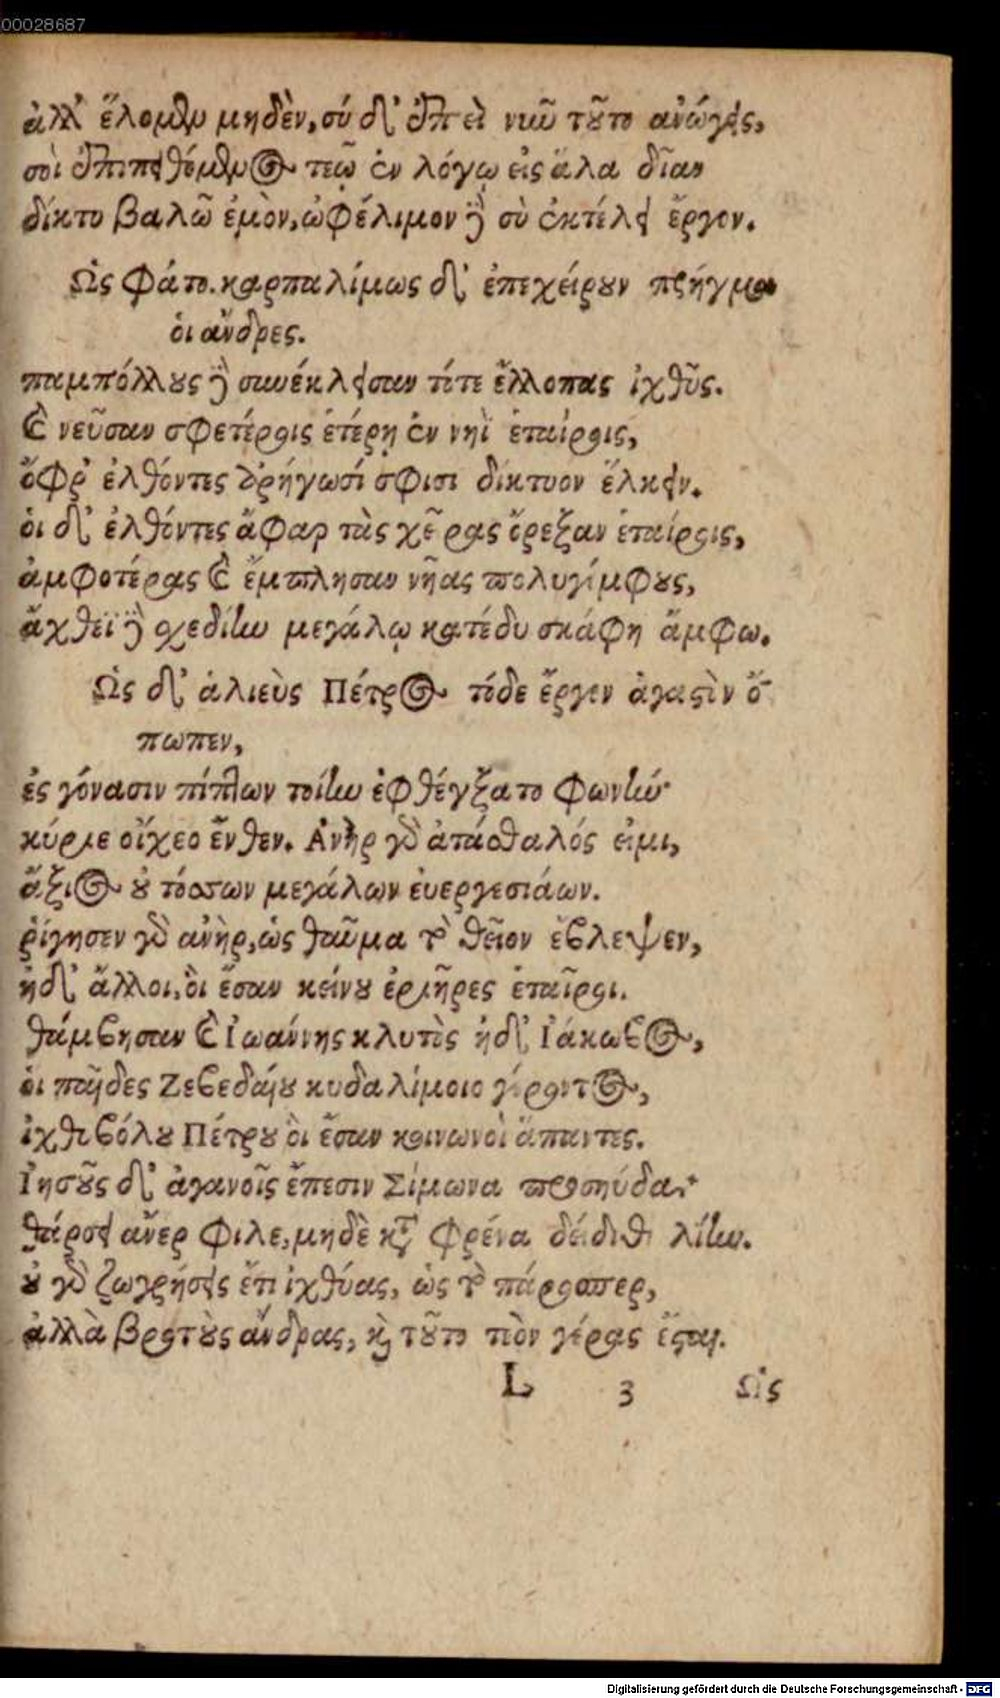 00028687
ἀλλ' ἕλομεν μηδὲν, σύ δ' ἐπεὶ νιῦ τοῦτο ἀνώγεις,
σοὶ ἐπιπειθόμενος τεῷ ἐν λόγῳ εἰς ἅλα δῖαν
δίκτυ βαλῶ ἐμὸν, ὠφέλιμον δὲ σὺ ἐκτέλει ἔργον.
Ὣς φάτο. καρπαλίμως δ' ἐπεχείρουν πρήγματι
οἱ ἄνδρες.
παμπόλλους δὲ συνέκλεισαν τότε ἔλλοπας ἰχθῦς.
καὶ νεῦσαν σφετέροις ἑτέρῃ ἐν νηῒ ἑταίροις,
ὄφρ' ἐλθόντες ἀρήγωσί σφισι δίκτυον ἕλκειν.
οἱ δ' ἐλθόντες ἄφαρ τὰς χεῖρας ὄρεξαν ἑταίροις,
ἀμφοτέρας καὶ ἔμπλησαν νῆας πολυγόμφους,
ἄχθεϊ δὲ σχεδίην μεγάλῳ κατέδυ σκάφη ἄμφω.
Ὡς δ' ἁλιεὺς Πέτρος τόδε ἔργον ἀγαστὸν ὄ-
πωπεν,
ἐς γόνασιν πίπτων τοίην ἐφθέγξατο φωνήν·
κύριε οἴχεο ἔνθεν. Ἀνὴρ γὰρ ἀτάσθαλός εἰμι,
ἄξιος οὐ τόσσων μεγάλων ἐυεργεσιάων.
ῥίγησεν γὰρ ἀνὴρ, ὡς θαῦμα τὸ θεῖον ἔβλεψεν,
ἠδ' ἄλλοι, οἳ ἔσαν κείνου ἐριῆρες ἑταῖροι.
θάμβησαν καὶ Ἰωάννης κλυτὸς ἠδ' Ἰάκωβος,
οἱ παῖδες Ζεβεδαίου κυδαλίμοιο γέροντος,
ἰχθυβόλου Πέτρου οἳ ἔσαν κοινωνοὶ ἅπαντες.
Ἰησοῦς δ' ἀγανοῖς ἔπεσιν Σίμωνα προσηύδα·
θάρσει ἄνερ φίλε, μηδὲ κατὰ φρένα δείδιθι λίην.
οὐ γὰρ ζωγρήσεις ἔτι ἰχθύας, ὡς τὸ πάροιπερ,
ἀλλὰ βροτοὺς ἄνδρας, καὶ τοῦτο τεὸν γέρας ἔσται.
L 3 Ὣς
Digitalisierung gefördert durch die Deutsche Forschungsgemeinschaft - DFG